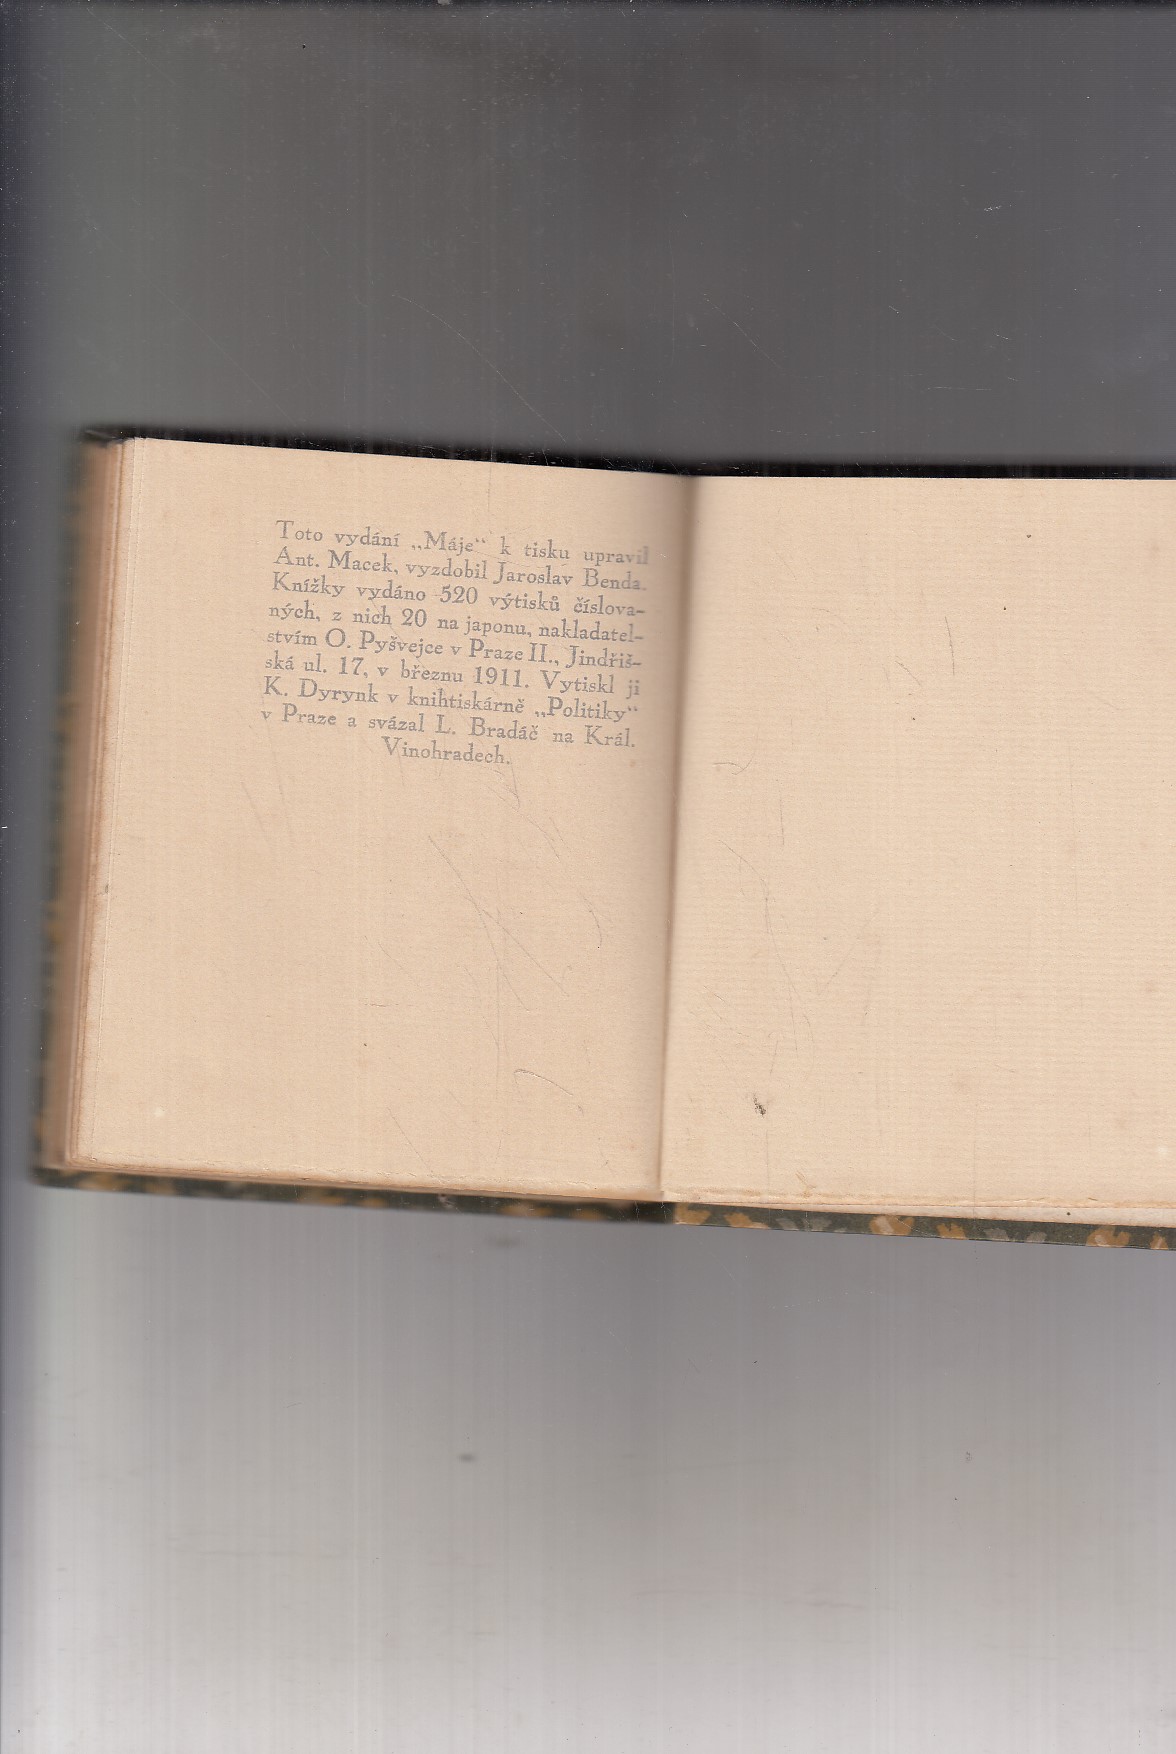 Toto vydání „Máje“ k tisku upravil
Ant. Macek, vyzdobil Jaroslav Benda.
Knížky vydáno 520 výtisků číslova-
ných, z nich 20 na japonu, nakladatel-
stvím O. Pyšvejce v Praze II., Jindřiš-
ská ul. 17, v březnu 1911. Vytiskl ji
K. Dyrynk v knihtiskárně „Politiky“
v Praze a svázal L. Bradáč na Král.
Vinohradech.